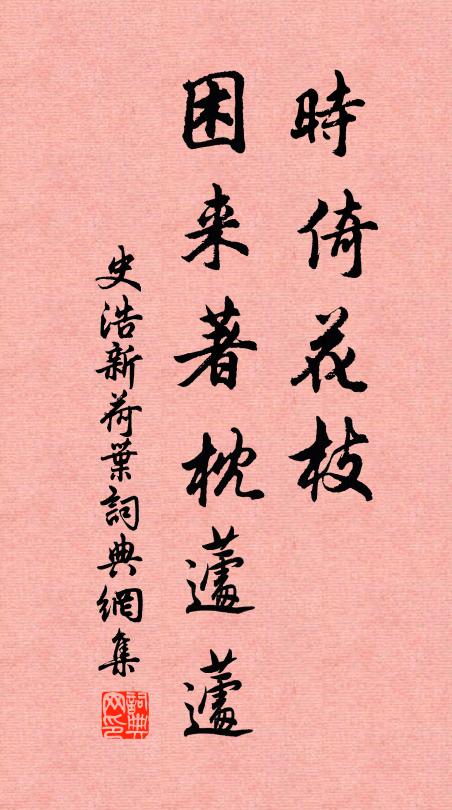 時倚花枝
困来著枕蘧蘧
史浩新荷葉詞典網集
詞典网印